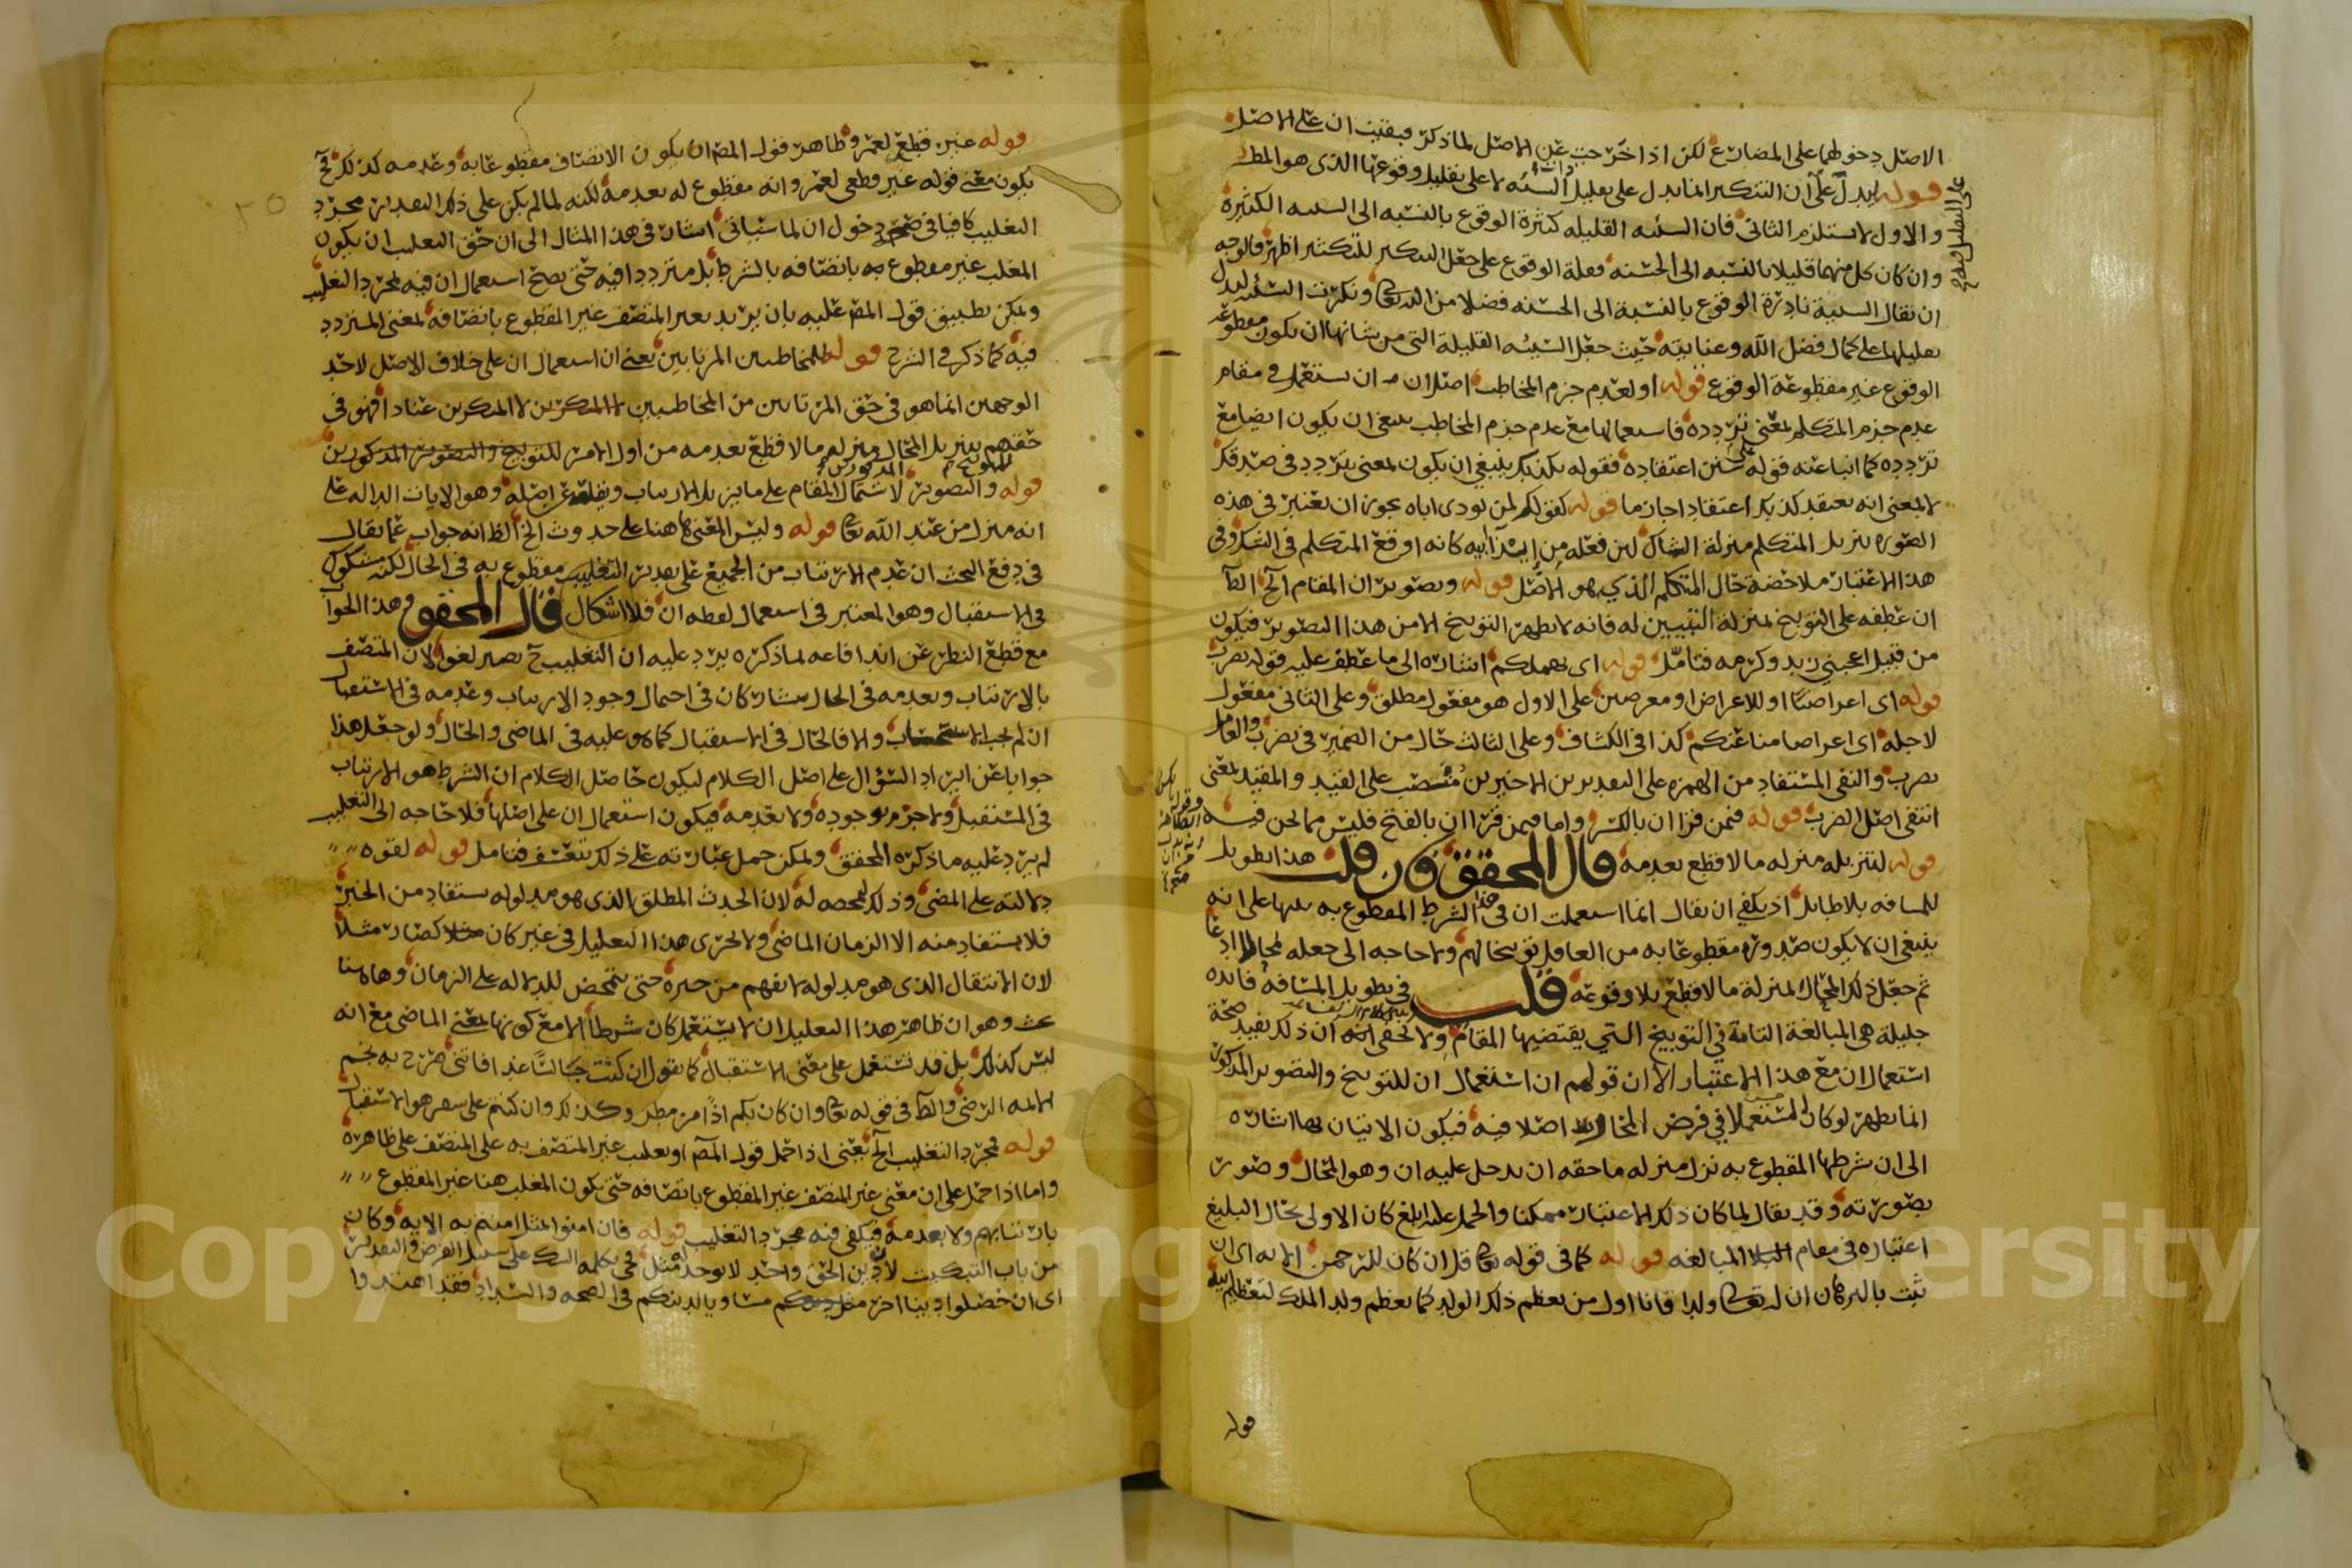 الاصل دخولها على المضارع لكن اذا اخرجت عن الاصل لما ذكر فبقيت ان على الاصل
قوله ليدل على ان التنكير انما يدل على تقليل السيئة لا على تقليل وقوعها الذى هو المط
و الاول لا يستلزم الثانى فان السيئه القليله كثيرة الوقوع بالنسبه الى السيئه الكثيرة
و ان كان كل منهما قليلا بالنسبه الى الحسنه فعلة الوقوع على جعل التنكير للتكثير اظهر فالوجه
ان يقال السيئة نادرة الوقوع بالنسبة الى الحسنه فضلا من الله تعالى و نكرت السيئه ليدل
تقليلها على كمال فضل الله و عنايته حيث جعل السيئه القليلة التى من شانها ان يكون مقطوعة
الوقوع غير مقطوعة الوقوع قوله او لعدم جزم المخاطب اصل ان ان تستعمل فى مقام
عدم جزم المتكلم بمعنى تردده فاستعمالها مع عدم جزم المخاطب ينبغى ان يكون ايضا مع
تردده كما انبا عنه قوله على سنن اعتقاده فقوله يكذبك ينبغى ان يكون بمعنى يتردد فى صدقك
لا بمعنى انه يعتقد كذبك اعتقادا جازما قوله كقولك لمن يوذى اباه يجوز ان يعتبر فى هذه
الصوره تنزيل المتكلم منزلة الشاك لان فعله من ايذا ابيه كانه اوقع المتكلم فى الشك و فى
هذا الاعتبار ملاحضة حال المتكلم الذي هو الاصل قوله و تصوير ان المقام الخ الظ
ان عطفه على التوبيخ بمنزلة التبيين له فانه لا يظهر التوبيخ الا من هذا التصوير فيكون
من قبيل اعجبني زيد و كرمه فتامل قوله اى نهملكم اشاره الى ما عطف عليه قوله نضرب
قوله اى اعراضا او للاعراض او معرضين على الاول هو مفعول مطلق و على الثانى مفعول
لاجله اى اعراضا منا عنكم كذا فى الكشاف و على الثالث حال من الضمير فى نضرب و العامل
نضرب و النفى المستفاد من الهمزه على التقديرين الاخيرين منصب على القيد و المقيد بمعنى
انتفى اصل الضرب قوله فمن قرا ان بالكسر و اما فيمن قرا ان بالفتح فليس مما نحن فيه
قوله لتنزيله منزله ما لا قطع بعدمه قال المحقق فان قلت هذا تطويل
للمسافه بلا طايل اذ يكفى ان يقال انما استعملت ان فى هذا الشرط المقطوع به تنبيها على انه
ينبغى ان لا يكون صدوره مقطوعا به من العاقل توبيخا لهم و لا حاجه الى جعله محالا ادعا
ثم جعل ذلك المحال بمنزلة ما لا قطع بلا وقوعه قلت فى تطويل المسافه فائده
جليلة هى المبالغة التامة في التوبيخ التي يقتضيها المقام و لا يخفى ان ذلك يفيد صحة
استعمال ان مع هذا الاعتبار الا ان قولهم ان استعمال ان للتوبيخ و التصوير المذكور
انما يظهر لو كان المستعملا في فرض المحال اصلا فيه فيكون الاتيان بها اشاره
الى ان شرطها المقطوع به نزل منزله ما حقه ان يدخل عليه ان و هو المحال و صور
بصورته و قد يقال لما كان ذلك الاعتبار ممكنا و الحمل عليه ابلغ كان الاولى بحال البليغ
اعتباره فى مقام المبالغه قوله كما فى قوله تعالى قل ان كان للرحمن الايه اى ان
ثبت بالبرهان ان له تعالى ولدا فانا اول من يعظم ذلك الولد كما يعظم ولد الملك لتعظيم ابيه
قوله
قوله عنين قطع لعمرو ظاهر قول المص ان يكون الاتصاف مقطوعا به و عدمه كذلك فح
يكون معنى قوله غير قطعى لعمرو انه مقطوع له بعدمه لكنه لما لم يكن على ذلك التقدير مجرد
التغليب كافيا فى صحة دخول ان لما سياتى اشار فى هذا المثال الى ان حق التغليب ان يكون
المغلب غير مقطوع به باتصافه بالشرط بل مترددا فيه حتى يصح استعمال ان فيه بمجرد التغليب
و يمكن تطبيق قول المص عليه بان يريد بغير المتصف غير المقطوع باتصافه بمعنى المتردد
فيه كما ذكر فى الشرح قوله للمخاطبين المرتابين يعنى ان استعمال ان على خلاف الاصل لاحد
الوجهين انما هو فى حق المرتابين من المخاطبين لا المنكرين عنادا فهو فى
حقهم بتنزيل المحال منزله ما لا قطع بعدمه من اول الامر للتوبيخ و التصوير المذكورين
قوله و التصوير لاشتمال المقام على ما يزيل الارتياب و يقلعه عن اصله و هو الايات الداله على
انه منزل من عند الله تعالى قوله و ليس المعنى هاهنا على حدوث الخ الظ انه جواب عما يقال
فى دفع البحث ان عدم الارتياب من الجميع على تقدير التغليب مقطوع به فى الحال لكنه مشكوك
فى الاستقبال و هو المعتبر فى استعمال لفظه ان فلا اشكال قال المحقق و هذا الجواب
مع قطع النظر عن اندفاعه لما ذكره يرد عليه ان التغليب ح يصير لغوا لان المتصف
بالارتياب و بعدمه فى الحال يتشاركان فى احتمال وجود الارتياب و عدمه فى الاستقبال
ان لم يجب الاستصحاب و الا فالحال فى الاستقبال كما هو عليه فى الماضى و الحال و لو جعل هذا
جوابا عن ايراد السؤال على اصل الكلام ليكون حاصل الكلام ان الشرط هو الارتياب
فى المستقبل و لا جزم بوجوده و لا بعدمه فيكون استعمال ان على اصلها فلا حاجه الى التغليب
لم يرد عليه ما ذكره المحقق و يمكن حمل عبارته على ذلك بتعسف فتامل قوله لقوه
دلالته على المضى و ذلك لتمحضه له لان الحدث المطلق الذى هو مدلوله يستفاد من الخبر
فلا يستفاد منه الا الزمان الماضى و لا يجرى هذا التعليل فى غير كان كصار مثلا
لان الانتقال الذى هو مدلوله لا يفهم من خبره حتى يتمحض للدلاله على الزمان و هاهنا
بحث و هو ان ظاهر هذا التعليل ان لا يستعمل كان شرطا الا مع كونها بمعنى الماضى مع انه
ليس كذلك بل قد تستعمل على معنى الاستقبال كما تقول ان كنت جالسا غدا فاتنى صرح به نجم
الائمه الرضى و الظ فى قوله تعالى و ان كان بكم اذا من مطر و كذلك و ان كنتم على سفر هو الاستقبال
قوله مجرد التغليب الخ يعنى اذا حمل قول المص او تغليب غير المتصف به على المتصف على ظاهره
و اما اذا حمل على ان معنى غير المتصف غير المقطوع باتصافه حتى يكون المغلب هنا غير المقطوع
بارتيابهم و لا بعدمه فيكفى فيه مجرد التغليب قوله فان امنوا بمثل ما امنتم به الايه و كان
من باب التبكيت لان دين الحق واحد لا يوجد مثله فجى بكلمه الشك على سبيل الفرض و التقدير
اى ان حصلوا دينا اخر مساويا لدينكم فى الصحه و السداد فقد اهتدوا